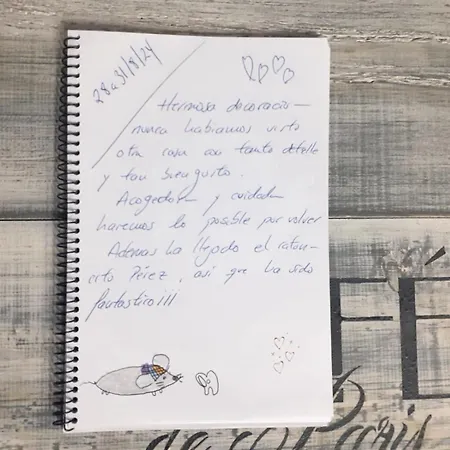 28 a 31/8/24
Hermosa decoración
nunca habíamos visto
otra casa con tanto detalle
y tan buen gusto.
Acogedor y cuidad
haremos lo posible por volver
Ademas ha llegado el raton-
cito Pérez, así que ha sido
fantastico¡¡¡
de Paris